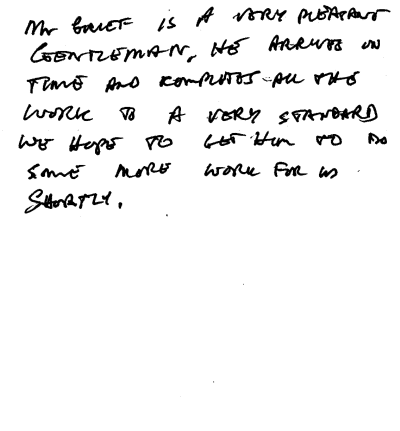 Mr IS A VERY PLEASANT
GENTLEMAN, HE ARRIVES ON
TIME AND COMPLETES ALL THE
WORK TO A VERY STANDARD
WE HOPE TO GET HIM TO DO
SOME MORE WORK FOR US
SHORTLY.